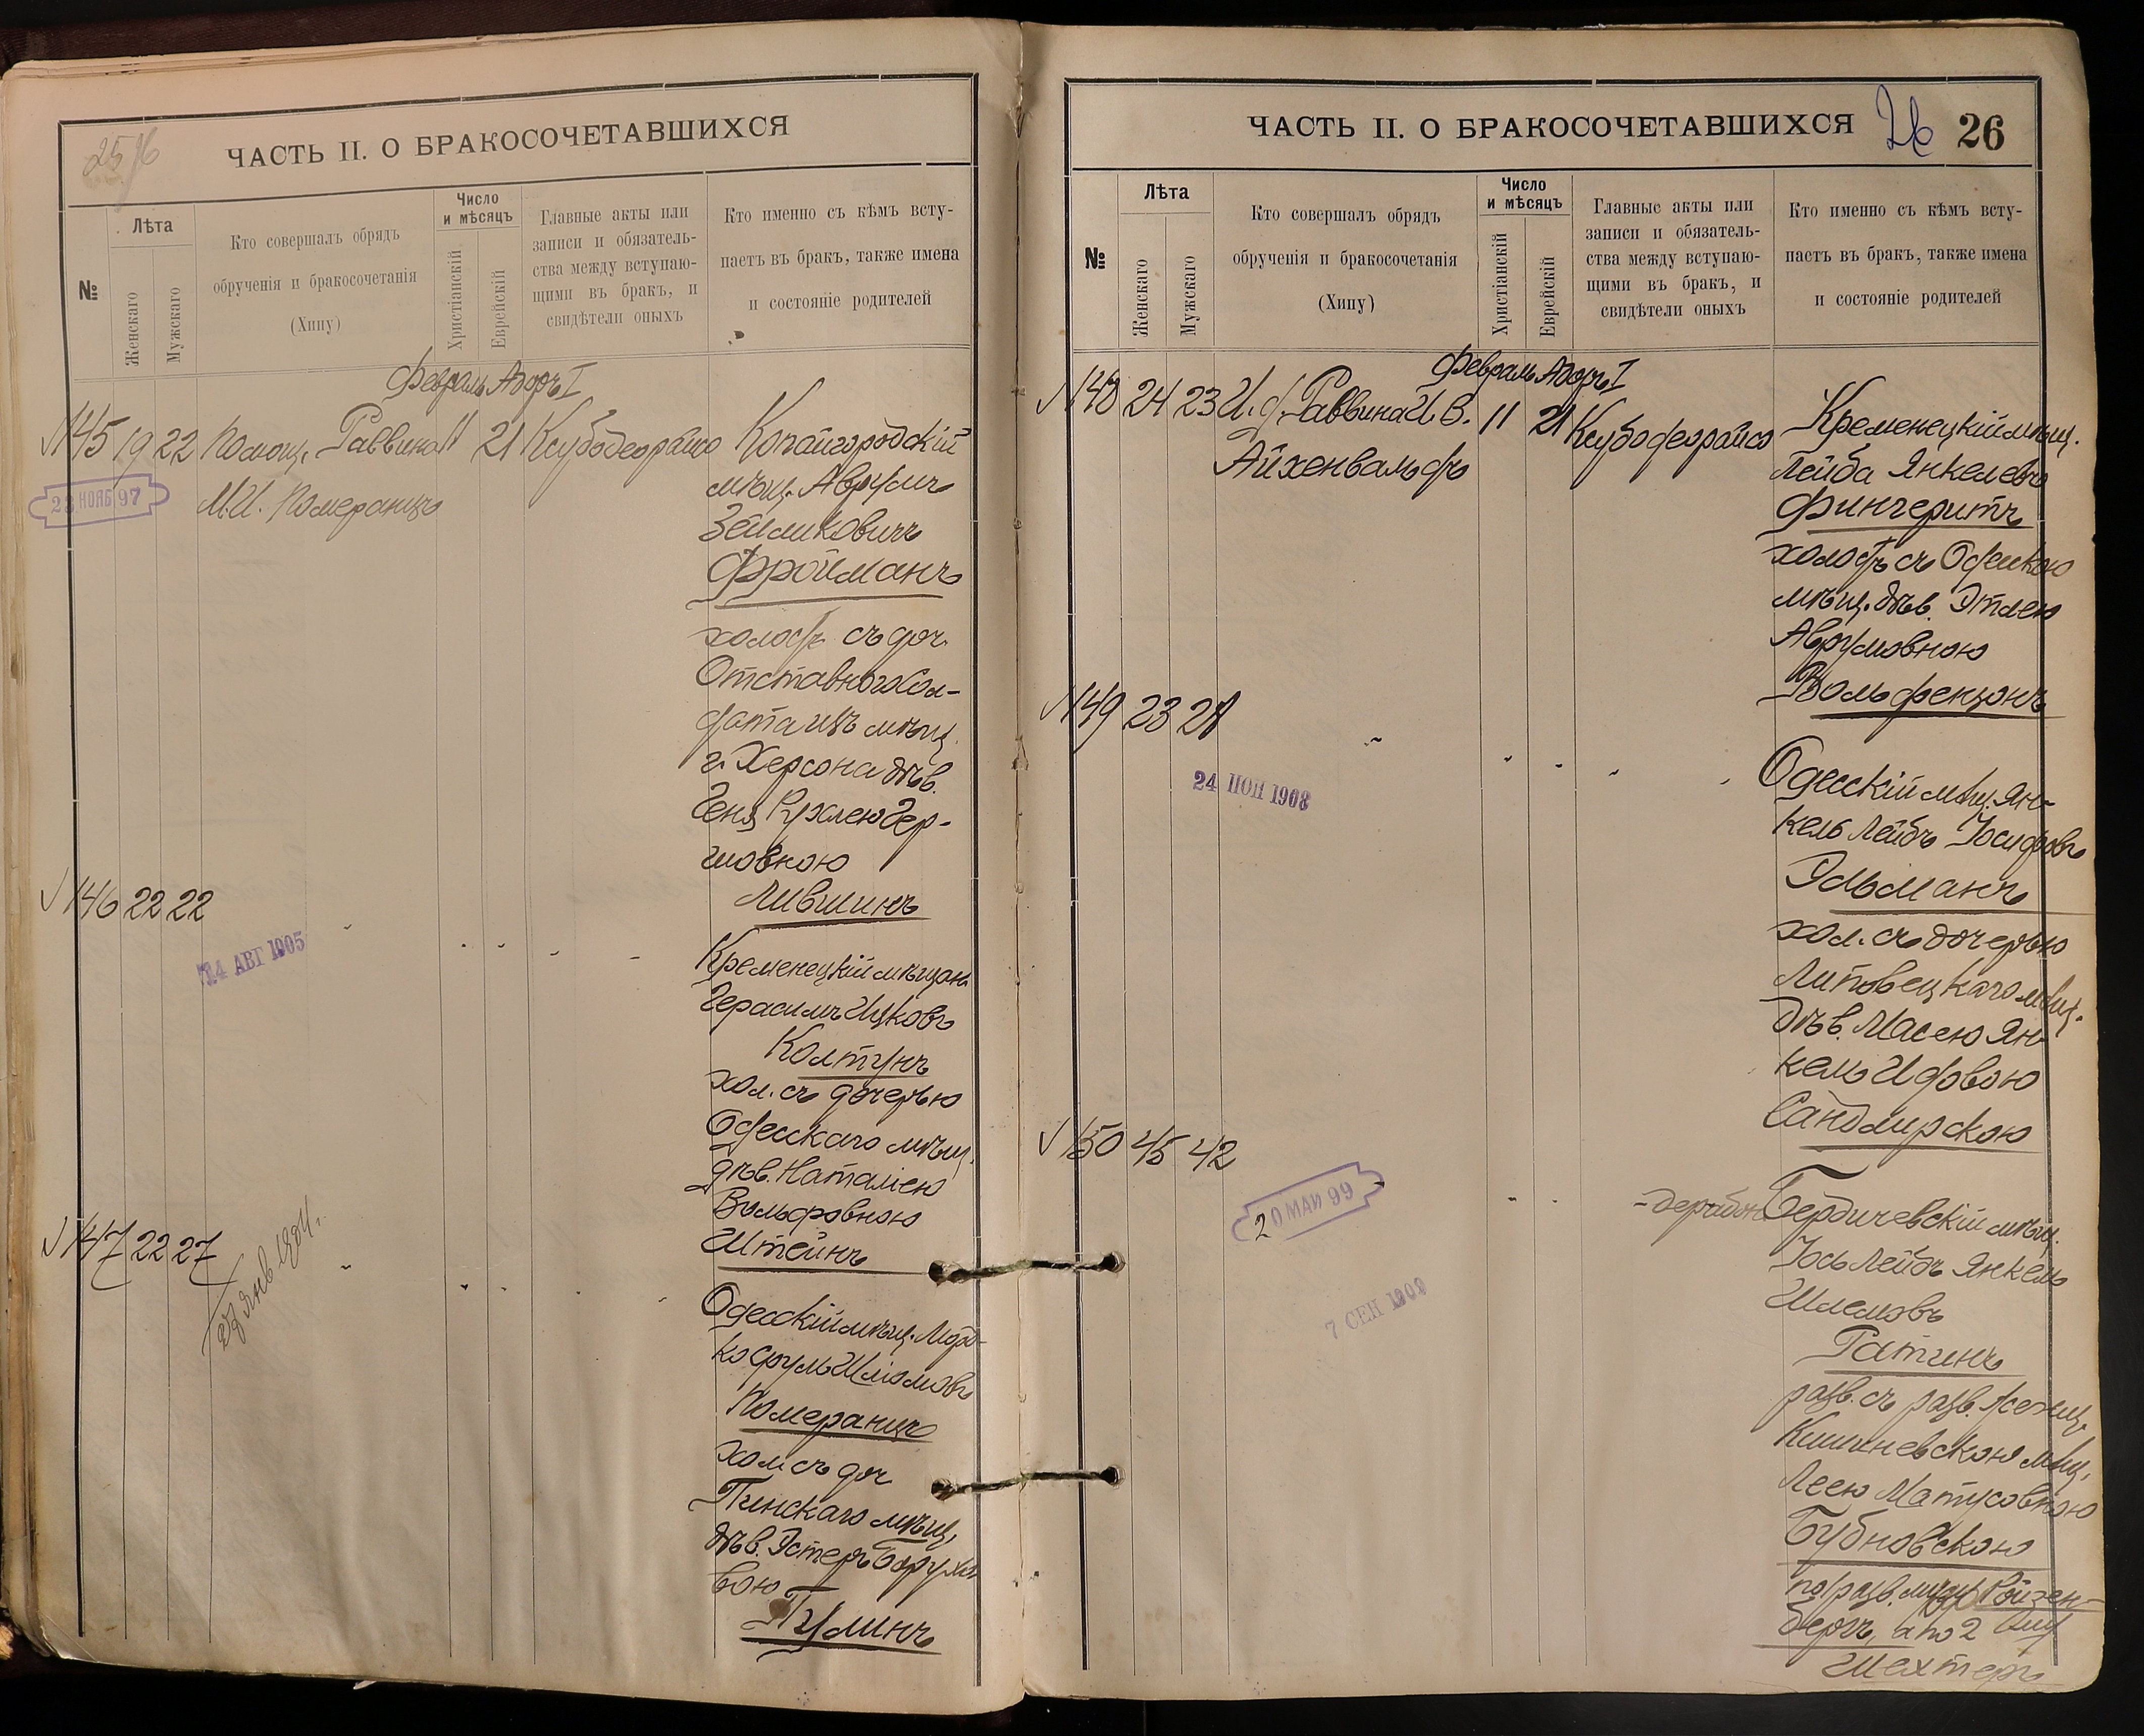 ЧАСТЬ II. О БРАКОСОЧЕТАВШИХСЯ
№
Лѣта
Женскаго
Мужскаго
Кто совершалъ обрядъ
обрученія и бракосочетанія
(Хипу)
Число
и мѣсяцъ
Христіанскій
Еврейскій
Главные акты или
записи и обязатель-
ства между вступаю-
щими въ бракъ, и
свидѣтели оныхъ
Кто именно съ кѣмъ всту-
паетъ въ бракъ, также имена
и состояніе родителей
Февраль Адоръ I
145 19 22 Помощ. Раввина 11 21 Ксубодеорайсо
23 НОЯБ 97
М.И. Померанцъ
Копайгородскій
мѣщ. Аврумъ
Зейликовичъ
Фройманъ
холостъ съ доч.
Отставного Сол-
дата изъ мѣщ.
г. Херсона дѣв.
Геня Рухлею Гер-
шовною
Лившинъ
146 22 22
14 АВГ 1905
Кременецкій мѣщан.
Герасимъ Ицковъ
Колтунъ
хол. съ дочерью
Одесскаго мѣщ.
дѣв. Наталіею
Вольфовною
Штейнъ
147 22 27
Одесскій мѣщ. Мord-
ко Сруль Шломовъ
Померанцъ
хол. съ доч
Пинскаго мѣщ.
дѣв. Эстеръ Борухо
вою
Пулинъ
ЧАСТЬ II. О БРАКОСОЧЕТАВШИХСЯ
26 26
№
Лѣта
Женскаго
Мужскаго
Кто совершалъ обрядъ
обрученія и бракосочетанія
(Хипу)
Число
и мѣсяцъ
Христіанскій
Еврейскій
Главные акты или
записи и обязатель-
ства между вступаю-
щими въ бракъ, и
свидѣтели оныхъ
Кто именно съ кѣмъ всту-
паетъ въ бракъ, также имена
и состояніе родителей
Февраль Адоръ I
148 24 23 И.д. Раввина И.В. 11 21 Ксубодеорайсо
Айхенвальдъ
Кременецкій мѣщ.
Лейба Янкелевъ
Фингеритъ
холостъ съ Одескою
мѣщ. дѣв. Этлею
Аврумовною
Вольфензонъ
149 23 21
24 ІЮН 1908
Одесскій мѣщ. Ян-
кель Лейбъ Іосифовъ
Эльманъ
хол. съ дочерью
Липовецкаго мѣщ.
дѣв. Масею Ян-
кель Идовою
Сандлирскою
150 45 42
20 МАЙ 99
7 СЕН 1909
Бердичевскій мѣщ.
Іось Лейбъ Янкель
Шлемовъ
Ратинъ
разв. съ разв. женщ.
Кишиневскою мѣщ.
Леею Матусовною
Бубновскою
по разв. мужу Ройзен-
бергъ, а по 2
Шехтеръ